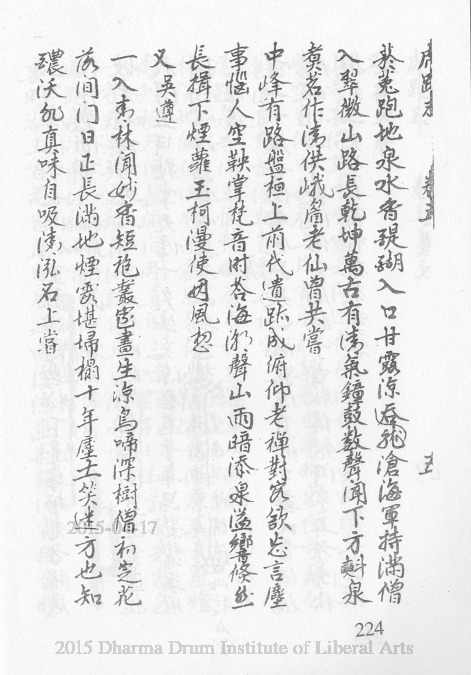 虎跑志 卷五 五
於菟跑地泉水香醍醐入口甘露涼吞納滄海軍持滿僧
入翠微山路長乾坤萬古有清氣鐘鼓數聲聞下方斟泉
煮茗作清供峨嵋老仙曾共嘗
中峰有路盤桓上前代遺跡成俯仰老禪對客欲忘言塵
事惱人空鞅掌梵音時答海潮聲山雨暗添泉溢響倏然
長揖下煙蘿玉柯漫使因風想
又吳遵
一入香林聞妙香短袍叢密晝生涼鳥啼深樹僧初定花
落間門日正長滿地煙霞堪埽榻十年塵土笑 方也知
醲沃非真味自吸清泓石上嘗
224
2015-04-17
2015 Dharma Drum Institute of Liberal Arts